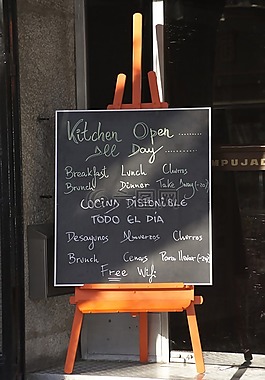 Kitchen Open ........
All Day ............
Breakfast Lunch Churros
Brunch Dinner Take Away (-20)
COCINA DISPONIBLE
TODO EL DÍA
Desayunos Almuerzos Churros
Brunch Cenas Para llevar (-20)
Free Wifi
EMPUJAD